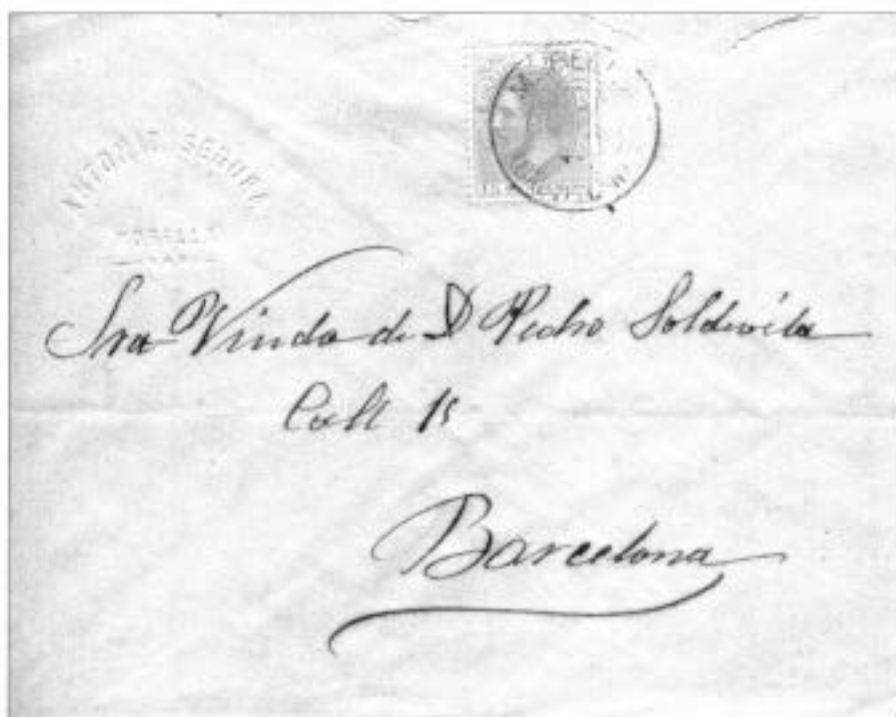 ANTONIO SEGURA
MORELLA
Sra Viuda de D Pedro Soldevila
Call 15
Barcelona